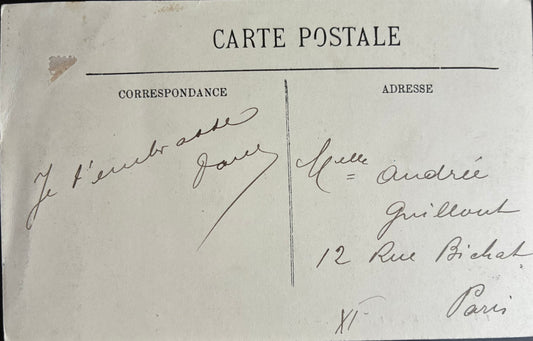 CARTE POSTALE
CORRESPONDANCE
ADRESSE
Je t'embrasse
Melle Andrée
Guillout
12 Rue Bichat
Paris
XI